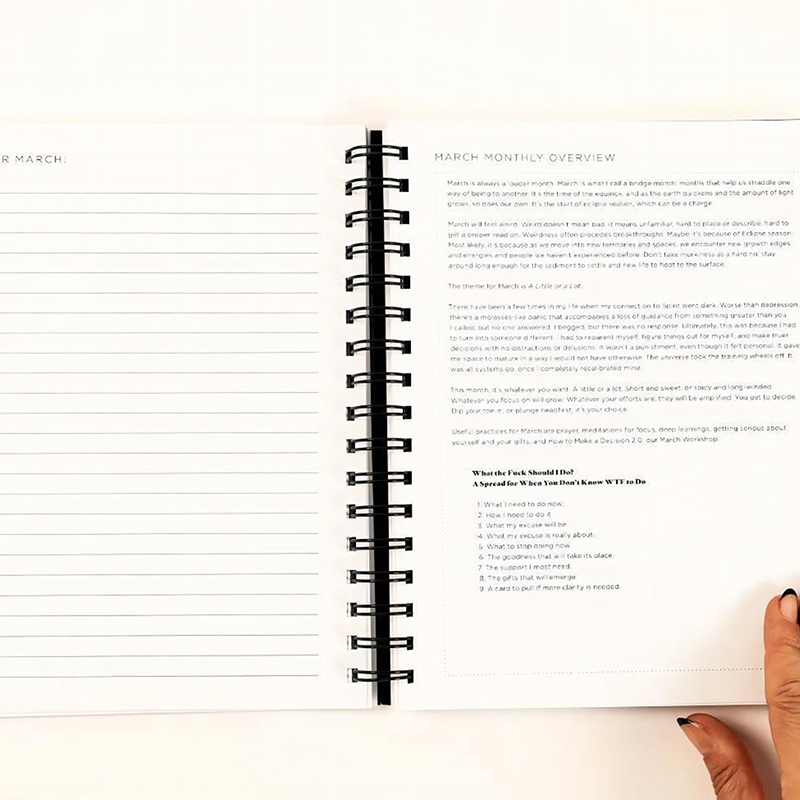 R MARCH:
MARCH MONTHLY OVERVIEW
March is always a louder month. March is what I call a bridge month: months that help us straddle one
way of being to another. It's the time of the equinox, and as the earth quickens and the amount of light
grows, so does our own. It's the start of eclipse season, which can be a charge.
March will feel weird. Weird doesn't mean bad, it means unfamiliar, hard to place or describe, hard to
get a proper read on. Weirdness often precedes breakthroughs. Maybe it's because of Eclipse season.
Most likely, it's because as we move into new territories and spaces, we encounter new growth edges
and energies and people we haven't experienced before. Don't take murkiness as a hard no; stay
around long enough for the sediment to settle and new life to float to the surface.
The theme for March is A Little or a Lot.
There have been a few times in my life when my connection to Spirit went dark. Worse than depression,
there's a molasses-like panic that accompanies a loss of guidance from something greater than you.
I called, but no one answered. I begged, but there was no response. Ultimately, this was because I had
to turn into someone different. I had to reparent myself, figure things out for myself, and make truer
decisions with no distractions or delusions. It wasn't a punishment, even though it felt personal. It gave
me space to mature in a way I would not have otherwise. The universe took the training wheels off. It
was all systems go, once I completely recalibrated mine.
This month, it's whatever you want. A little or a lot. Short and sweet, or spicy and long-winded.
Whatever you focus on will grow. Whatever your efforts are, they will be amplified. You get to decide.
Dip your toe in, or plunge headfirst, it's your choice.
Useful practices for March are prayer, meditations for focus, deep learnings, getting serious about
yourself and your gifts, and How to Make a Decision 2.0, our March Workshop.
What the Fuck Should I Do?
A Spread for When You Don't Know WTF to Do
1. What I need to do now.
2. How I need to do it.
3. What my excuse will be.
4. What my excuse is really about.
5. What to stop doing now.
6. The goodness that will take its place.
7. The support I most need.
8. The gifts that will emerge.
9. A card to pull if more clarity is needed.